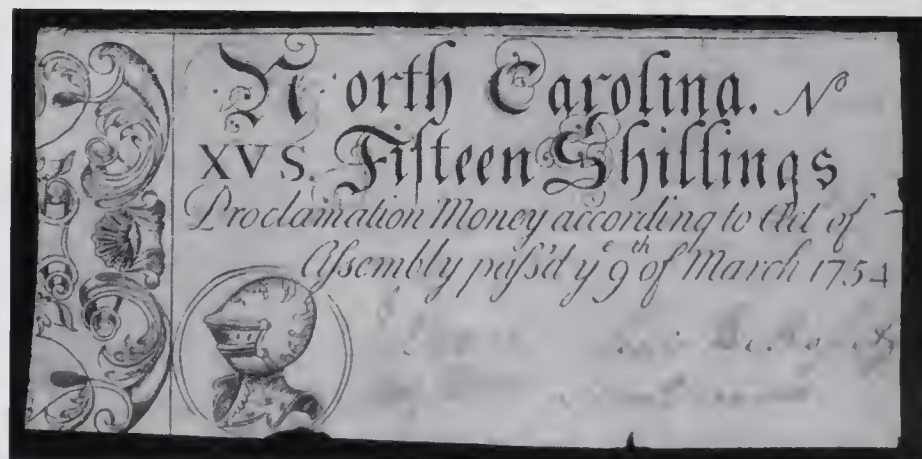 North Carolina. No
XVS. Fifteen Shillings
Proclamation Money according to Act of
Assembly paſs'd ye 9th of March 1754